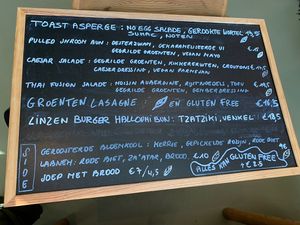 TOAST ASPERGE: NO EGG SALADE, GEROOKTE WORTEL
NOTEN
PULLED JNROOM BUN: OESTERZWAM, GEKARAMELISEERDE UI
GEGRILDE GROENTEN, VEGAN MAYO
CAESAR SALADE: GEGRILDE GROENTEN, KIKKERERWTEN, CROUTONS
CAESAR DRESSING, VEGAN PARMESAN
THAI FUSION SALADE: HOISIN AUBERGINE, RIJSTNOEDEL, TOFU
GEGRILDE GROENTEN, GEMBER DRESSING
GROENTEN LASAGNE: EN GLUTEN FREE
LINZEN BURGER HALLOUMI BUN: TZATZIKI, VENKEL
SIDE
GEROOSTERDE BLOEMKOOL: KERRIE, GEPICKELDE RODE BIET
LABNEH: RODE BIET, ZA'ATAR, BROOD €10
JOEP MET BROOD €7/4,5
ALLES KAN GLUTEN FREE
+€2.5